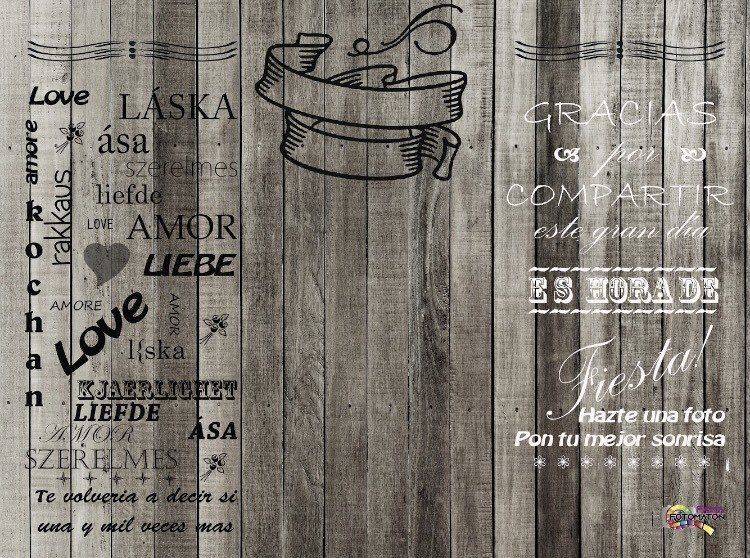 Love
LÁSKA
amore
ása
szerelmes
rakkaus
liefde
kochan
LOVE
AMOR
LIEBE
AMORE
Love
AMOR
l{ska
KJAERLIGHET
LIEFDE
AMOR
ÁSA
SZERELMES
Te volveria a decir si
una y mil veces mas
GRACIAS
por
COMPARTIR
este gran día
ES HORA DE
Fiesta!
Hazte una foto
Pon tu mejor sonrisa
FOTOMATON